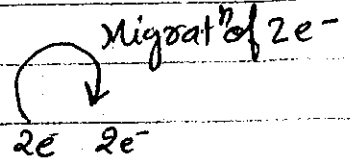 Migratⁿ of 2e⁻
2e 2e⁻